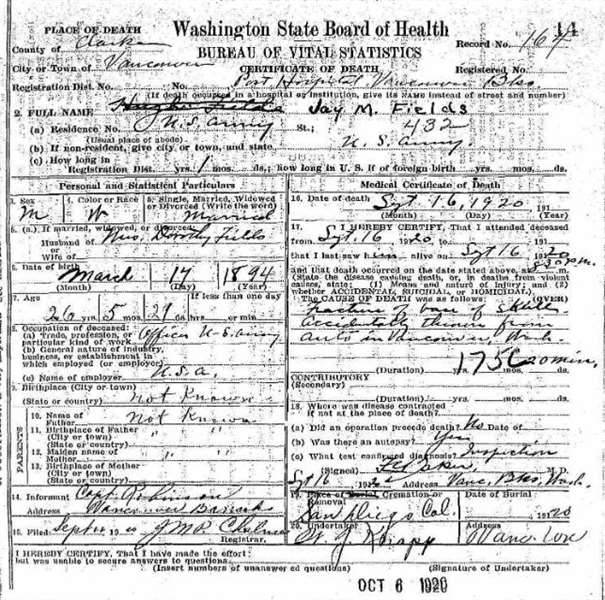 14
PLACE OF DEATH
Washington State Board of Health
County of Clarke
BUREAU OF VITAL STATISTICS
Record No. 164
City or Town of Vancouver
CERTIFICATE OF DEATH
Registered No.
Registration Dist. No. Post Hospital Vancouver Bks
(If death occurred in a hospital or institution, give its NAME instead of street and number)
2. FULL NAME Jay M. Fields
(a) Residence No. U.S. army St.; 432
(Usual place of abode)
(b) If non-resident, give city or town, and state, U.S. army.
(c) How long in
Registration Dist. yrs. 1 mos. ds.; how long in U.S. if of foreign birth yrs. mos. ds.
Personal and Statistical Particulars
3. Sex
M
4. Color or Race
W
5. Single, Married, Widowed
or Divorced (Write the word)
Married
5. (a) If married, widowed, or divorced,
Husband of Mrs. Dorothy Fields
Wife of
6. Date of birth
March 17 1894
(Month) (Day) (Year)
7. Age
If less than one day
26 yrs. 5 mos. 29 ds. hrs or min.
8. Occupation of deceased:
(a) Trade, profession, or
particular kind of work Officer U-S. army
(b) General nature of industry,
business, or establishment in
which employed (or employer)
(c) Name of employer U.S.a.
9. Birthplace (City or town)
(State or country) not Known
PARENTS
10. Name of
Father not Known
11. Birthplace of Father " "
(City or town)
(State or country)
12. Maiden name of
Mother " "
13. Birthplace of Mother
(City or town) " "
(State or country)
14. Informant Capt. Robinson
Address Vancouver Barracks
15. Filed Sept
Registrar.
Medical Certificate of Death
16. Date of death Sept 16, 1920 191
(Month) (Day) (Year)
17. I HEREBY CERTIFY, That I attended deceased
from Sept 16 1920 to Sept 16 1920
that I last saw h alive on
and that death occurred on the date stated above, at m.
(State the disease causing death, or, in deaths from violent
causes, state: (1) Means and nature of injury; and (2)
whether ACCIDENTAL, SUICIDAL, or HOMICIDAL.)
The CAUSE OF DEATH was as follows: (OVER)
fracture of base of skull
accidentally thrown from
auto in Vancouver, Wash.
175C
(Duration) yrs. mos. 20 min.
CONTRIBUTORY
(Secondary)
(Duration) yrs. mos. ds.
18. Where was disease contracted
if not at the place of death?
(a) Did an operation precede death No Date of
(b) Was there an autopsy? Yes
(c) What test confirmed diagnosis? Inspection
(Signed) M.D.
Sept 16 Vanc. Bks, Wash.
19. Place of Burial, Cremation or
Removal
San Diego Cal.
Date of Burial
20. Undertaker
Address
Vancouver
I HEREBY CERTIFY, That I have made the effort
but was unable to secure answers to questions
(Insert numbers of unanswered questions)
(Signature of Undertaker)
OCT 6 1920